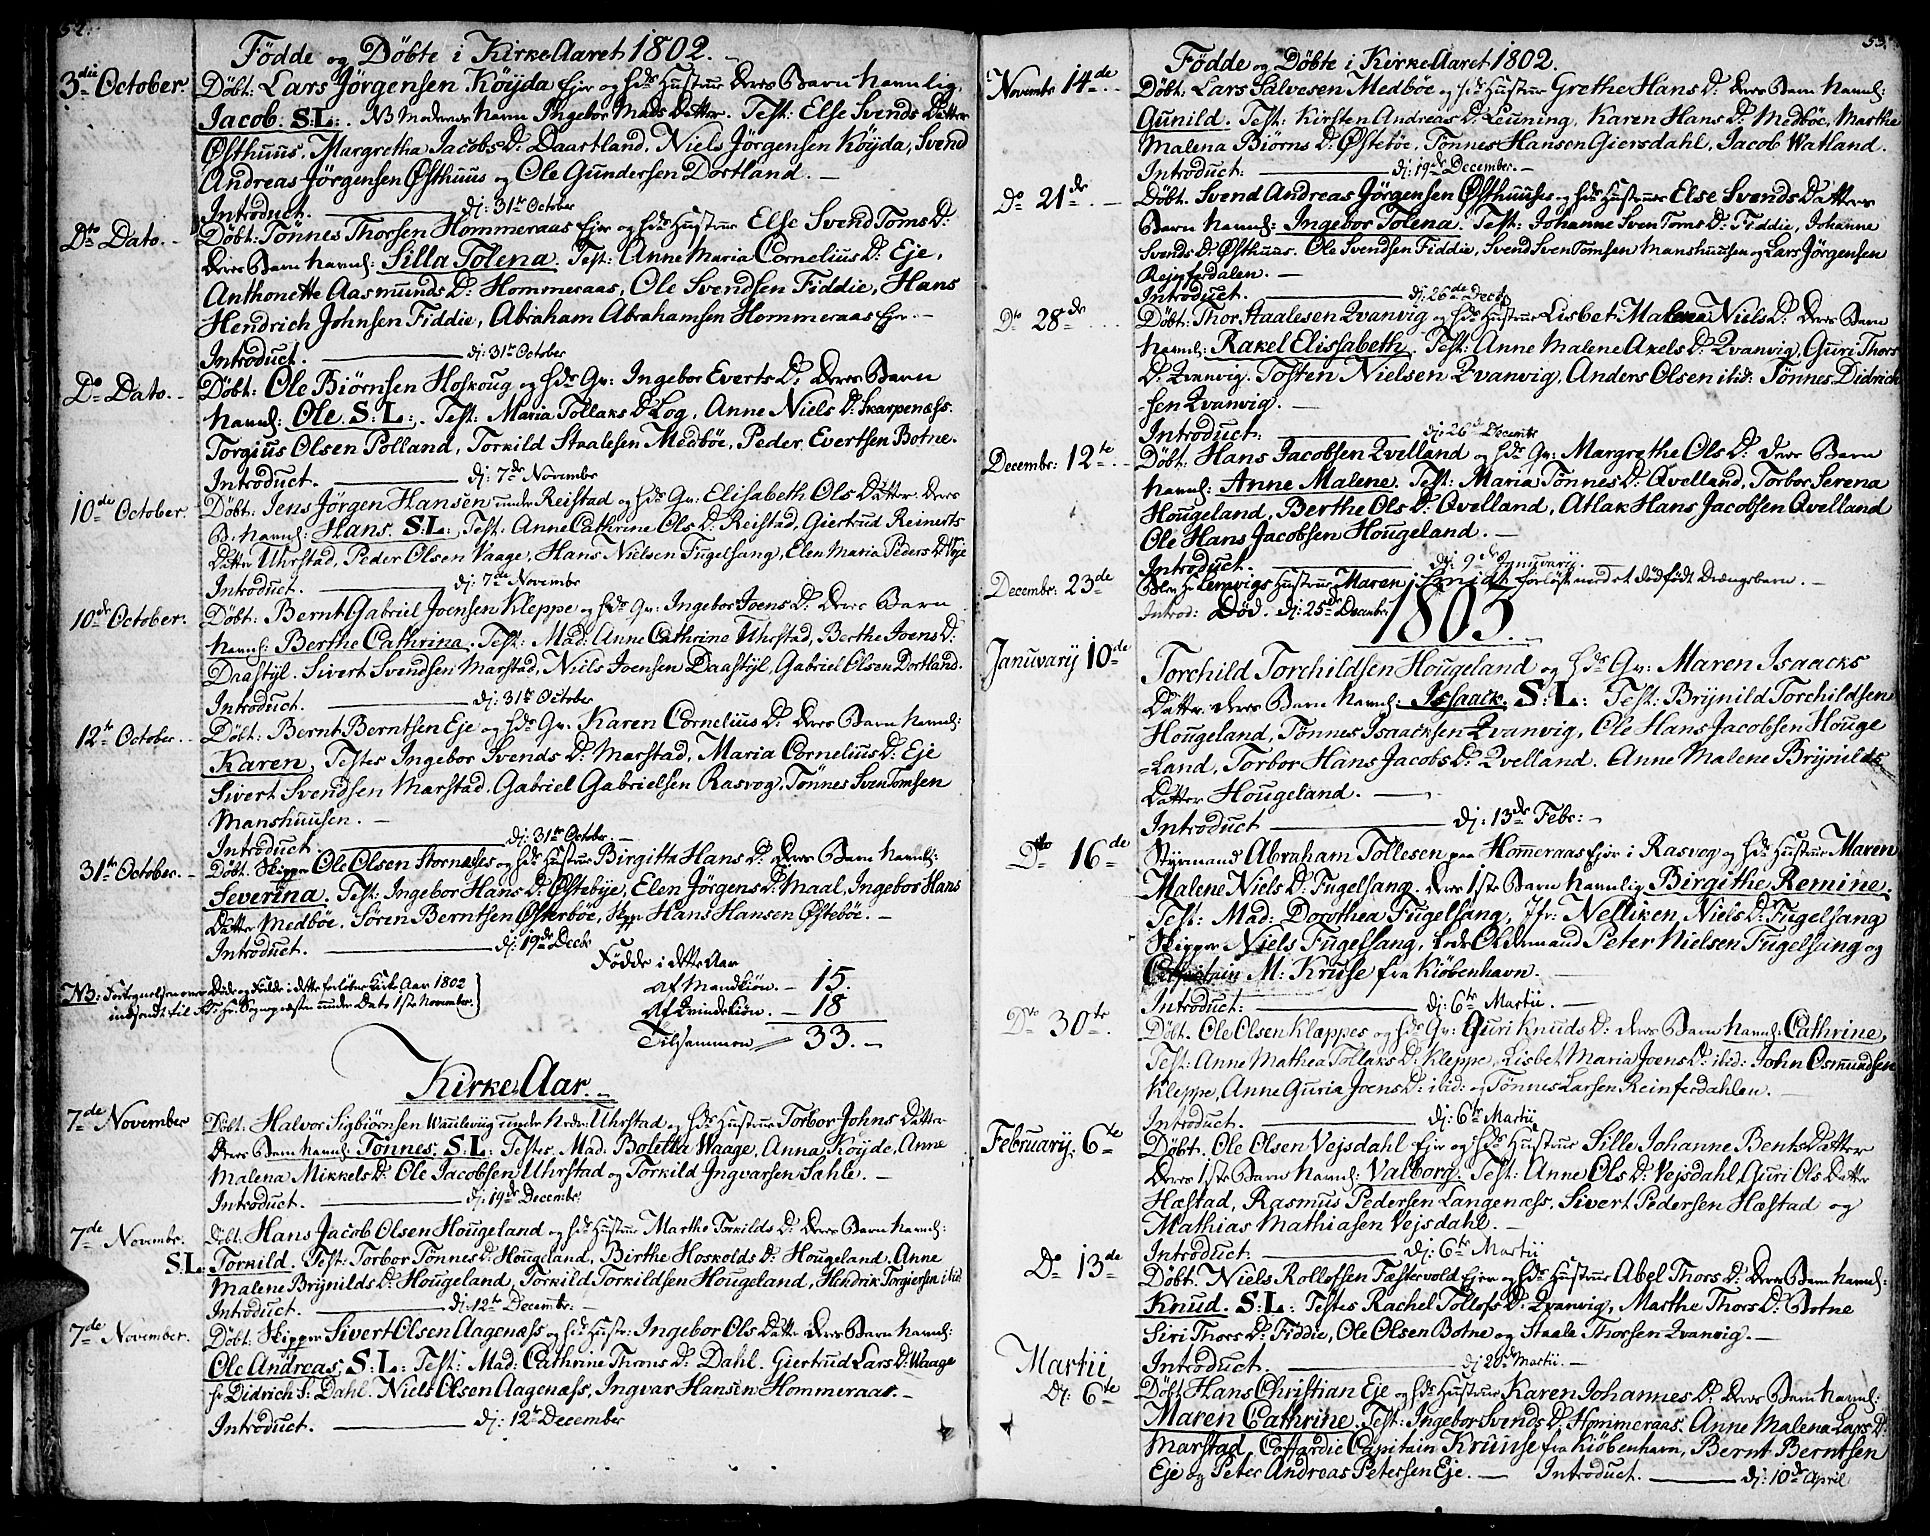 52.
Födde og Döbte i KirkeAaret 1802.
3die October.
Döbt: Lars Jörgensen Köyda Ejer og Hds Hustrue deres Barn navnlig.
Jacob: S:L:. NB Moderens Navn Ingebor Mads Datter. Test: Else Svends Datter
Østhuus, Margretha Jacobs D: Daartland, Niels Jörgensen Köyda, Svend
Andreas Jörgensen Østhuus og Ole Gundersen Dortland. -
Introduct. dj: 31te October
Dto Dato. -
Döbt: Tönnes Thorsen Hommeraas Ejer og Hds Hustrue Else Svend Toms D:
deres Barn navnl: Silla Tolena. Test: Anne Maria Cornelius D: Eje,
Anthonette Aasmunds D: Hommeraas, Ole Svendsen Fiddie, Hans
Hendrich Johnsen Fiddie, Abraham Abrahamsen Hommeraas Ejer. -
Introduct. dj: 31te October
Do Dato. -
Döbt: Ole Biörnsen Hoskoug og Hds Qv: Ingebor Everts D: deres Barn
navnl: Ole. S:L:. Test: Maria Tollaks D: Log, Anne Niels D: Skarpenæss.
Torgius Olsen Polland, Torkild Staalesen Medböe, Peder Evertsen Botne.
Introduct. dj: 7de Novembr
10de October.
Döbt: Jens Jörgen Hansen under Reistad og Hds Qv: Elisabeth Ols Datter deres
B: navnl: Hans. S:L:. Test: Anne Cathrine Ols D: Reistad, Giertrud Reinerts
Datter Uhrstad, Peder Olsen Vaage, Hans Nielsen Fugelsang, Elen Maria Peders D: Veje
Introduct. dj: 7de Novembr
10de October.
Döbt: Bernt Gabriel Joensen Kleppe og Hds Qv: Ingebor Joens D: deres Barn
navnl: Berthe Cathrina. Test: Mad: Anne Cathrine Uhrstad, Berthe Joens D:
Daastyl. Sivert Svendsen Marstad, Niels Joensen Daastyl, Gabriel Olsen Dortland.
Introduct. dj: 31te October
12te October. -
Döbt: Bernt Berntsen Eje og Hds Qv: Karen Cornelius D: deres Barn navnl:
Karen, Testes Ingebor Svends D: Marstad, Maria Cornelius D: Eje
Sivert Svendsen Marstad, Gabriel Gabrielsen Rasvog, Tönnes SvenTomsen
Manshuusen. -
Introduct. dj: 31te October. -
31te October. -
Döbt. Skipper Ole Olsen Stornæsses og Hds Hustrue Birgitta Hans D: deres Barn navnl:
Severina. Test: Ingebor Hans D: Østebye, Elen Jörgens D: Maal, Ingebor Hans
Datter Medböe. Sören Berntsen Østerböe, Skpr Hans Hansen Østeböe. -
Introduct. dj: 19de Decbr
Födde i dette Aar
NB: Fortegnelsen over Döde og Födde i dette forløbne Kirke Aar 1802
indsendt til Hr. Sognepræsten under Dato 1ste November.
Af Mandkiön. - 15.
Af Qvindekiön. - 18
Tilsammen - 33. -
Kirke Aar. -
7de November
Döbt. Halvor Sigbiörnsen Waulevug under Nedr: Uhrstad og Hds Hustrue Torbor Johns Datter
deres Barn navnl: Tönnes. S.L. Testes. Mad: Boletta Waage, Anna Köyde, Anne
Malena Mikkels D: Ole Jacobsen Uhrstad og Torkild Ingvarsen Sahle. -
Introduct. dj: 19de Decembr
7de Novembr.
Döbt. Hans Jacob Olsen Hougeland og Hds Hustrue Marthe Torkilds D: deres Barn navnl:
S.L. Torkild. Test: Torbor Tönnes D: Hougeland, Birthe Hoskolds D: Hougeland, Anne
Malene Brynilds D: Hougeland, Torkild Torkildsen Hougeland, Hendrik Torgiersen ibid
Introduct. dj: 12te Decembr. -
7de November.
Döbt. Skipper Sivert Olsen Aagenæss og Hds Hustr: Ingebor Ols Datter deres Barn navnl:
Ole Andreas. S:L: Test: Mad: Cathrine Throns D: Dahl. Giertrud Lars D: Waage
Hr Didrich S: Dahl. Niels Olsen Aagenæss, Ingvar Hansen Hommeraas. -
Introduct. dj: 12te December
53.
Födde og Döbte i KirkeAaret 1802.
Novembr 14de
Döbt. Lars Salvesen Medböe og Hds Hustrue Grethe Hans D: deres Barn navnl:
Gunild. Test: Kirsten Andreas D: Leuning, Karen Hans D: Medböe, Marthe
Malena Biörns D: Østeböe, Tönnes Hansen Giersdahl, Jacob Watland.
Introduct: dj: 19de December. -
Do 21de
Döbt. Svend Andreas Jörgensen Østhuuses og Hds Hustrue Else Svends Datters
Barn navnl: Ingebor Tolena. Test: Johanne Sven Toms D: Fiddie, Johanne
Svends D: Østhuus. Ole Svendsen Fiddie, Svend SvenTomsen Manshuusen og Lars Jörgensen
Reinferdalen. -
Introduct. dj: 26de Decbr
Do 28de
Döbt: Thor Staalesen Qvanvig og Hds Hustrue Lisbet Malena Niels D: deres Barn
navnl: Rakel Elissabeth. Test: Anne Malene Axels D: Qvanvig, Guri Thors
D: Qvanvig. Tosten Nielsen Qvanvig, Anders Olsen ibid: Tönnes Didrich
-sen Qvanvig. -
Introduct: dj: 26de Decembr
Decembr: 12te
Döbt. Hans Jacobsen Qvelland og Hds Qv: Margrethe Ols D: deres Barn
navnl: Anne Malene. Test: Maria Tönnes D: Qvelland, Torbor Serena
Hougeland, Berthe Ols D: Qvelland, Atlak Hans Jacobsen Qvelland
Ole Hans Jacobsen Hougeland. -
Introduct. dj: 9de Januvarij. -
Decembr: 23de
Blev Hr Lemvigs Hustrue Maren Schmidt forlöst med et dödfödt Drengebarn. -
Introd: Död. dj: 25de Decembr
1803.
Januvarij 10de
Torchild Torchildsen Hougeland og Hds Qv: Maren Isaacks
Datter deres Barn navnl: Issaack. S:L: Test: Brynild Torchildsen
Hougeland, Tönnes Isaacksen Qvanvig, Ole Hans Jacobsen Houge
-Land, Torbor Hans Jacobs D: Qvelland. Anne Malene Brynilds
Datter Hougeland. -
Introduct dj: 13de Febr: -
Dto 16de
Styrmand Abraham Tollesen paa Hommeraas Ejer i Rasvog og Hds Hustrue Maren
Malene Niels D: Fugelsang. deres 1ste Barn navnlig Birgithe Remine.
Test: Mad: Dorothea Fugelsang, Jfr: Nelliken Niels D: Fugelsang
Skipper Niels Fugelsang, Lods Oldermand Peter Nielsen Fugelsang og
Capitain M: Kruse fra Kiöbenhavn. -
Introduct: dj: 6te Martii. -
Dto 30te
Döbt. Ole Olsen Klæppes og Hds Qv: Guri Knuds D: deres Barn navnl: Cathrine,
Test: Anne Mathea Tollaks D: Kleppe, Lisbet Maria Joens D: ibid: John Osmundsen
Kleppe, Anne Guria Joens D: ibid: og Tönnes Larsen Reinferdahlen. -
Introduct. dj: 6te Martii
Februarij. 6te
Döbt. Ole Olsen Vejsdahl Ejer og Hds Hustrue Sille Johanne Bents Datter
deres 1ste Barn navnl: Valborg. Test: Anne Ols D: Vejsdahl, Guri Ols Datter
Hæstad, Rasmus Pedersen Langenæss, Sivert Pedersen Hæstad og
Mathias Mathiasen Vejsdahl. -
Introduct: dj: 6te Martii
Do 13de
Döbt. Niels Rollofsen Fæstervold Ejer og Hds Hustrue Abel Thors D: deres Barn navnl:
Knud. S:L: Testes Rachel Tollofs D: Qvanvig, Marthe Thors D: Botne
Siri Thors D: Fiddie, Ole Olsen Botne og Staale Thorsen Qvanvig. -
Introduct. dj 20de Martii. -
Martii
dj: 6te
Döbt Hans Christian Eje og Hds Hustrue Karen Johannes D: deres Barn navnl:
Maren Cathrine. Test: Ingebor Svends D: Hommeraas, Anne Malena Lars D:
Marstad, Coffardie Capitain Kruuse fra Kiöbenhavn, Bernt Berntsen
Eje og Peter Andreas Petersen Eje. - Introduct. dj: 10de April